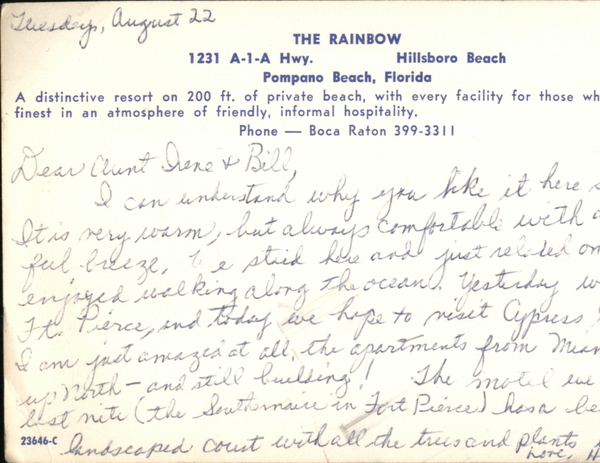 Tuesday, August 22
THE RAINBOW
1231 A-1-A Hwy. Hillsboro Beach
Pompano Beach, Florida
A distinctive resort on 200 ft. of private beach, with every facility for those wh
finest in an atmosphere of friendly, informal hospitality.
Phone — Boca Raton 399-3311
Dear Aunt Irene & Bill,
I can understand why you like it here s
It is very warm, but always comfortable with a
ful breeze. We staid here and just relaxed on
enjoyed walking along the ocean. Yesterday w
Ft. Pierce, and today we hope to visit Cypress
I am just amazed at all the apartments from Miam
up North - and still building! The motel we
last nite (the Southernaire in Fort Pierce) has a be
landscaped court with all the trees and plants
Love,
23646-C